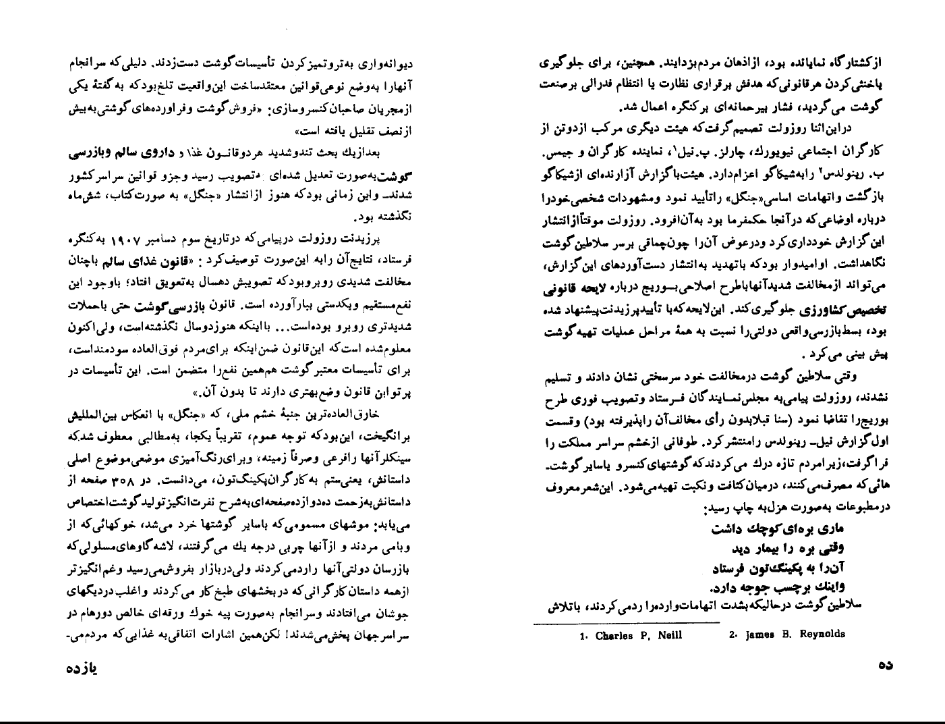 ازکشتارگاه نمایانده بود، ازاذهان مردم بزدایند. همچنین، برای جلوگیری
یاخنثی کردن هرقانونی که هدفش برقراری نظارت یا انتظام فدرالی برصنعت
گوشت می‌گردید، فشار بیرحمانه‌ای برکنگره اعمال شد.
دراین اثنا روزولت تصمیم گرفت که هیئت دیگری مرکب ازدوتن از
کارگران اجتماعی نیویورك، چارلز. پ. نیل۱، نماینده کارگران و جیمس.
ب. رینولدس۲ رابه شیکاگو اعزام دارد. هیئت باگزارش آزارنده‌ای ازشیکاگو
بازگشت واتهامات اساسی «جنگل» راتأیید نمود ومشهودات شخصی خودرا
درباره اوضاعی که درآنجا حکمفرما بود به آن افزود. روزولت موقتاً ازانتشار
این گزارش خودداری کرد ودرعوض آن‌را چون چماقی برسر سلاطین گوشت
نگاهداشت. او امیدوار بود که باتهدید به انتشار دست‌آوردهای این گزارش،
می‌تواند ازمخالفت شدید آنها باطرح اصلاحی بوریج درباره لایحه قانونی
تخصیص کشاورزی جلوگیری کند. این لایحه که با تأیید پرزیدنت پیشنهاد شده
بود، بسط بازرسی واقعی دولتی را نسبت به همهٔ مراحل عملیات تهیه گوشت
پیش بینی می‌کرد .
وقتی سلاطین گوشت درمخالفت خود سرسختی نشان دادند و تسلیم
نشدند، روزولت پیامی به مجلس نمایندگان فرستاد وتصویب فوری طرح
بوریج را تقاضا نمود (سنا قبلا بدون رأی مخالف آن را پذیرفته بود) وقسمت
اول گزارش نیل- رینولدس رامنتشر کرد. طوفانی ازخشم سراسر مملکت را
فراگرفت، زیرا مردم تازه درك می‌کردند که گوشتهای کنسرو یاسایر گوشت-
هائی که مصرف می‌کنند، درمیان کثافت و نکبت تهیه می‌شود. این شعر معروف
درمطبوعات به صورت هزل به چاپ رسید:
ماری بره‌ای کوچك داشت
وقتی بره را بیمار دید
آن‌را به پکینگ‌تون فرستاد
واینك برچسب جوجه دارد.
سلاطین گوشت درحالیکه بشدت اتهامات وارده را رد می‌کردند، باتلاش
1. Charles P, Neill 2. James B. Reynolds
ده
دیوانه‌واری به تروتمیز کردن تأسیسات گوشت دست زدند. دلیلی که سرانجام
آنها را به وضع نوعی قوانین معتقد ساخت این واقعیت تلخ بود که به گفتهٔ یکی
ازمجریان صاحبان کنسروسازی: «فروش گوشت وفراورده‌های گوشتی به بیش
ازنصف تقلیل یافته است»
بعدازیك بحث تندوشدید هردوقانون غذا و داروی سالم وبازرسی
گوشت به صورت تعدیل شده‌ای به تصویب رسید وجزو قوانین سراسر کشور
شدند- واین زمانی بود که هنوز ازانتشار «جنگل» به صورت کتاب، شش ماه
نگذشته بود.
پرزیدنت روزولت درپیامی که درتاریخ سوم دسامبر ۱۹۰۷ به کنگره
فرستاد، نتایج آن رابه این صورت توصیف کرد : «قانون غذای سالم باچنان
مخالفت شدیدی روبرو بود که تصویبش دهسال به تعویق افتاد؛ باوجود این
نفع مستقیم ویکدستی ببار آورده است. قانون بازرسی گوشت حتی باحملات
شدیدتری روبرو بوده است... با اینکه هنوز دوسال نگذشته است، ولی اکنون
معلوم شده است که این قانون ضمن اینکه برای مردم فوق‌العاده سودمند است،
برای تأسیسات معتبر گوشت هم همین نفع را متضمن است. این تأسیسات در
پرتو این قانون وضع بهتری دارند تا بدون آن.»
خارق‌العاده‌ترین جنبهٔ خشم ملی، که «جنگل» با انعکاس بین‌المللیش
برانگیخت، این بود که توجه عموم، تقریباً یکجا، به مطالبی معطوف شد که
سینکلر آنها رافرعی وصرفاً زمینه، وبرای رنگ آمیزی موضعی موضوع اصلی
داستانش، یعنی ستم به کارگران پکینگ‌تون، می‌دانست. در ۳۰۸ صفحه از
داستانش به زحمت ده دوازده صفحه‌ای به شرح نفرت انگیز تولید گوشت اختصاص
می‌یابد: موشهای مسمومی که باسایر گوشتها خرد می‌شد، خوکهائی که از
وبا می مردند و ازآنها چربی درجه یك می‌گرفتند، لاشه گاوهای مسلولی که
بازرسان دولتی آنها را رد می‌کردند ولی دربازار بفروش می‌رسید وغم انگیزتر
ازهمه داستان کارگرانی که دربخشهای طبخ کار می‌کردند واغلب دردیگهای
جوشان می‌افتادند وسرانجام به صورت پیه خوك ورقه‌ای خالص دورهام در
سراسر جهان پخش می‌شدند! لکن همین اشارات اتفاقی به غذایی که مردم می-
یازده